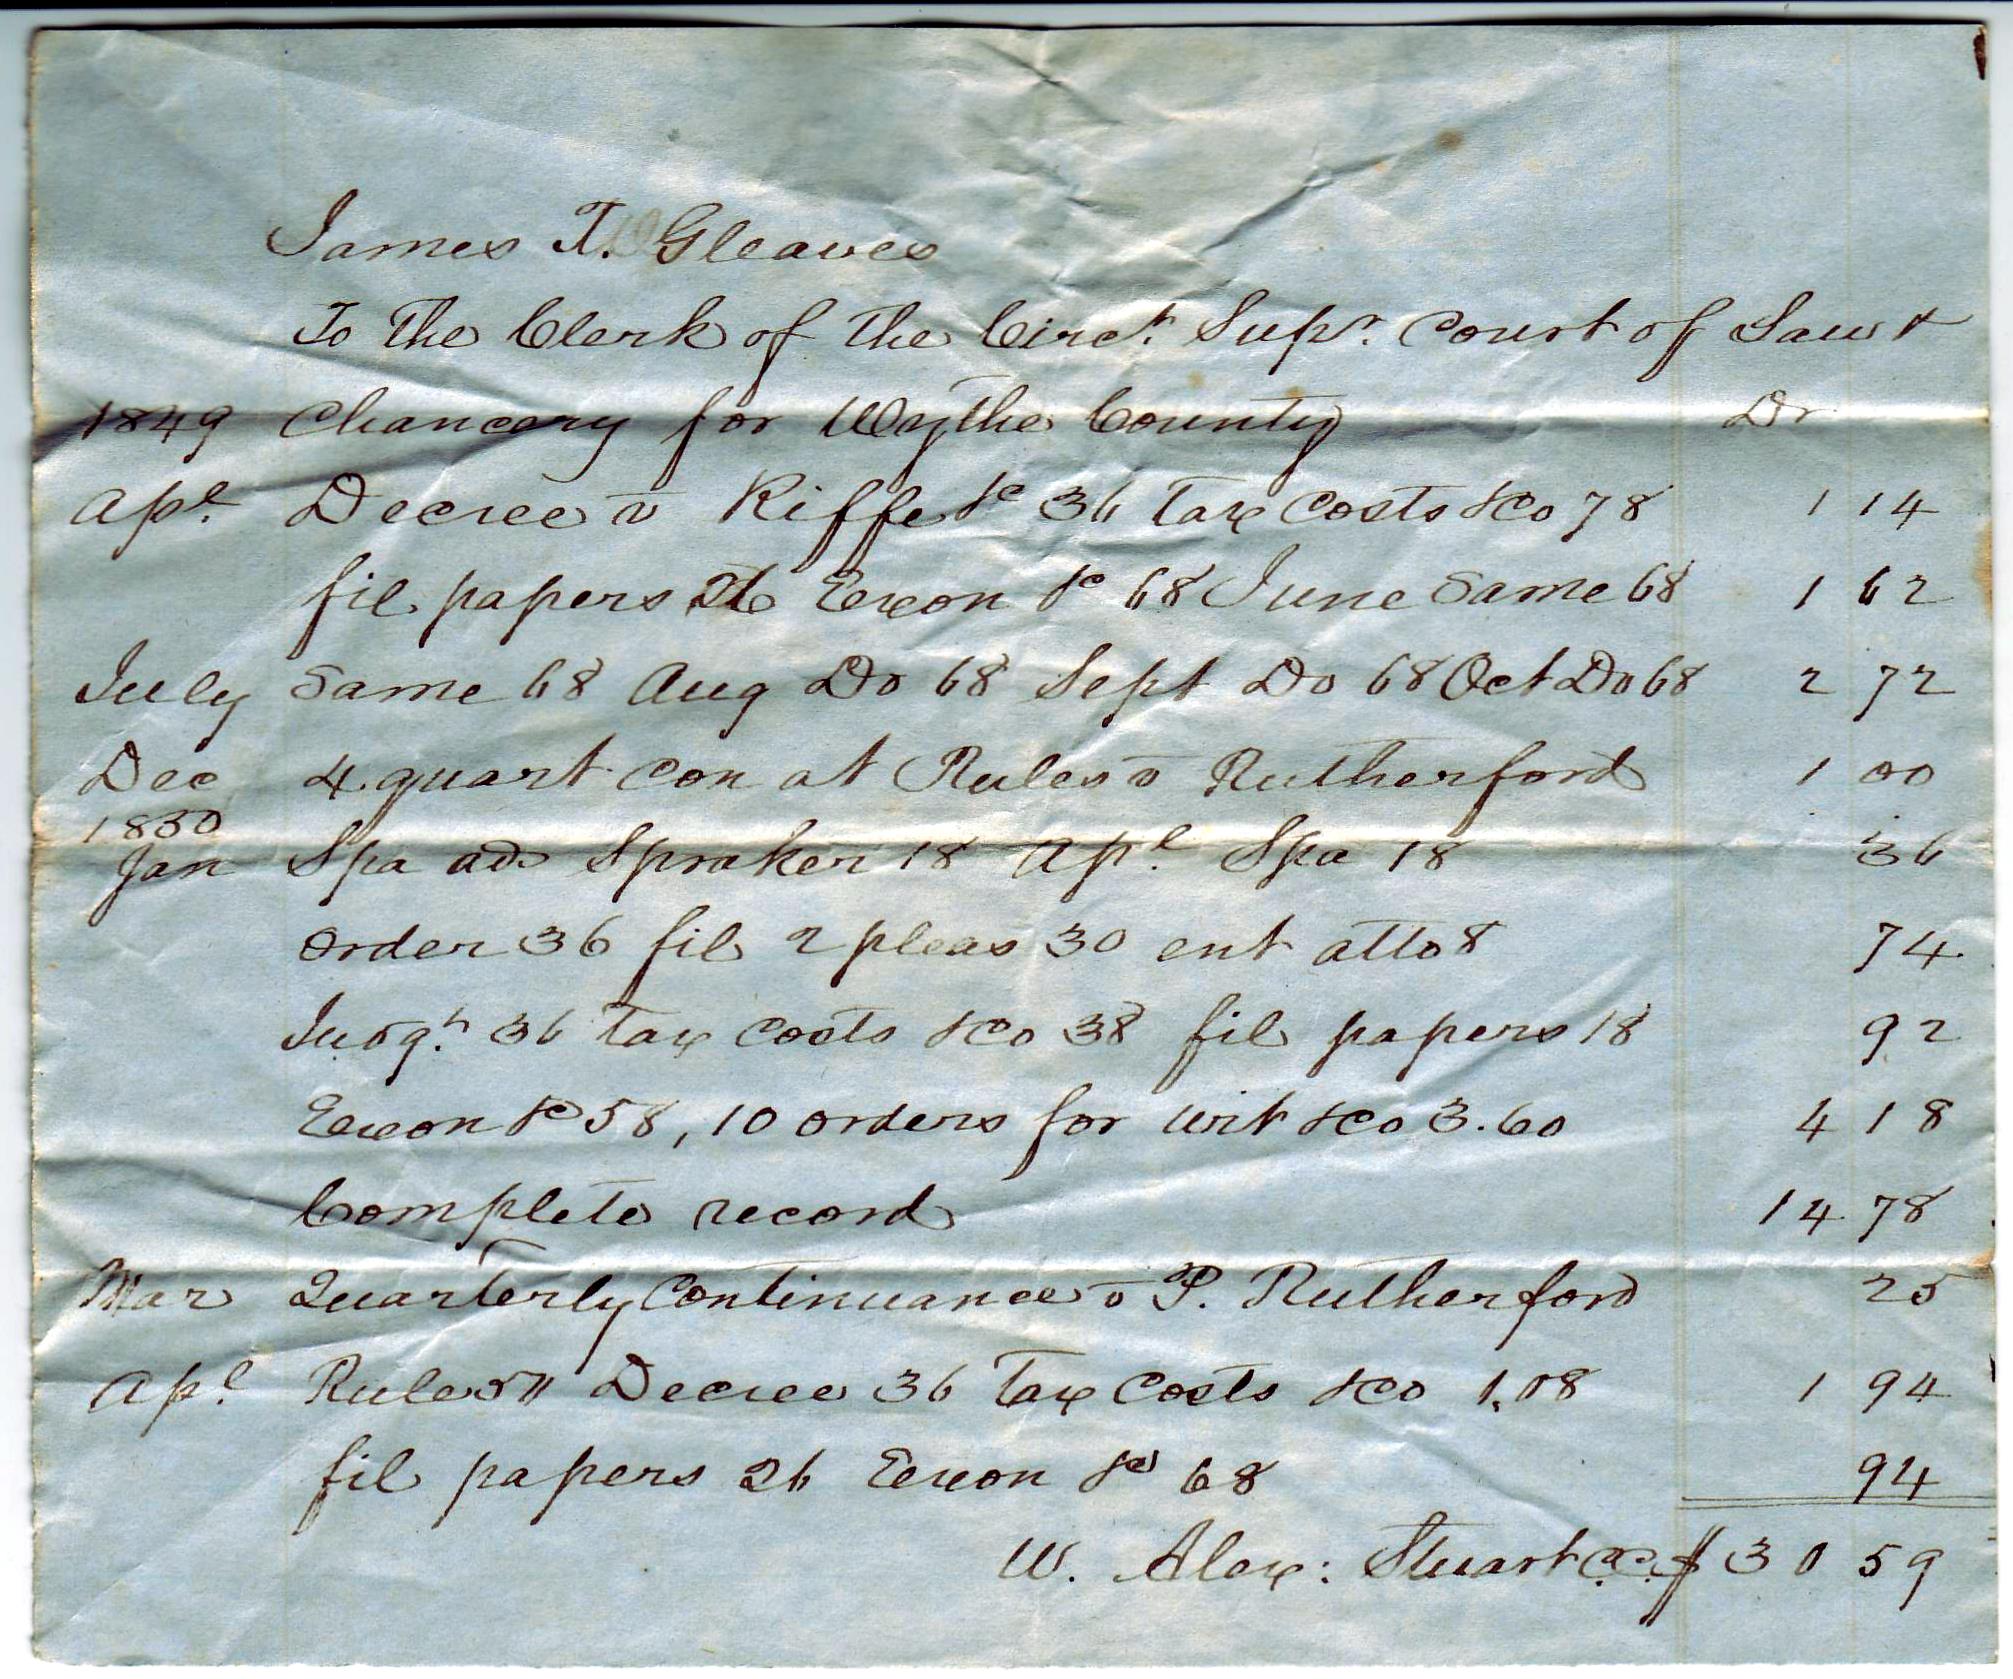 James T. Gleaves
To the Clerk of the Circt. Supr. Court of Law &
1849 Chancery for Wythe County Dr
Apl. Decree v Riffe &c 36 Tax Costs &Co 78 1 14
fil papers 26 Exeon &c 68 June Same 68 1 62
July Same 68 Aug Do 68 Sept Do 68 Oct Do 68 2 72
Dec 4 quart con at Rules v Rutherford 1 00
1850
Jan Spa ads Spraker 18 Apl. Spa 18 36
Order 36 fil 2 pleas 30 ent atto 8 74
Judgt. 36 Tax Costs &Co 38 fil papers 18 92
Exeon &c 58, 10 orders for wit &Co 3.60 4 18
Complete record 14 78
Mar Quarterly Continuance v P. Rutherford 25
Apl. Rules 50 Decree 36 Tax Costs &Co 1.08 1 94
fil papers 26 Exeon &c 68 94
W. Alex: Stuart C.C. $ 30 59